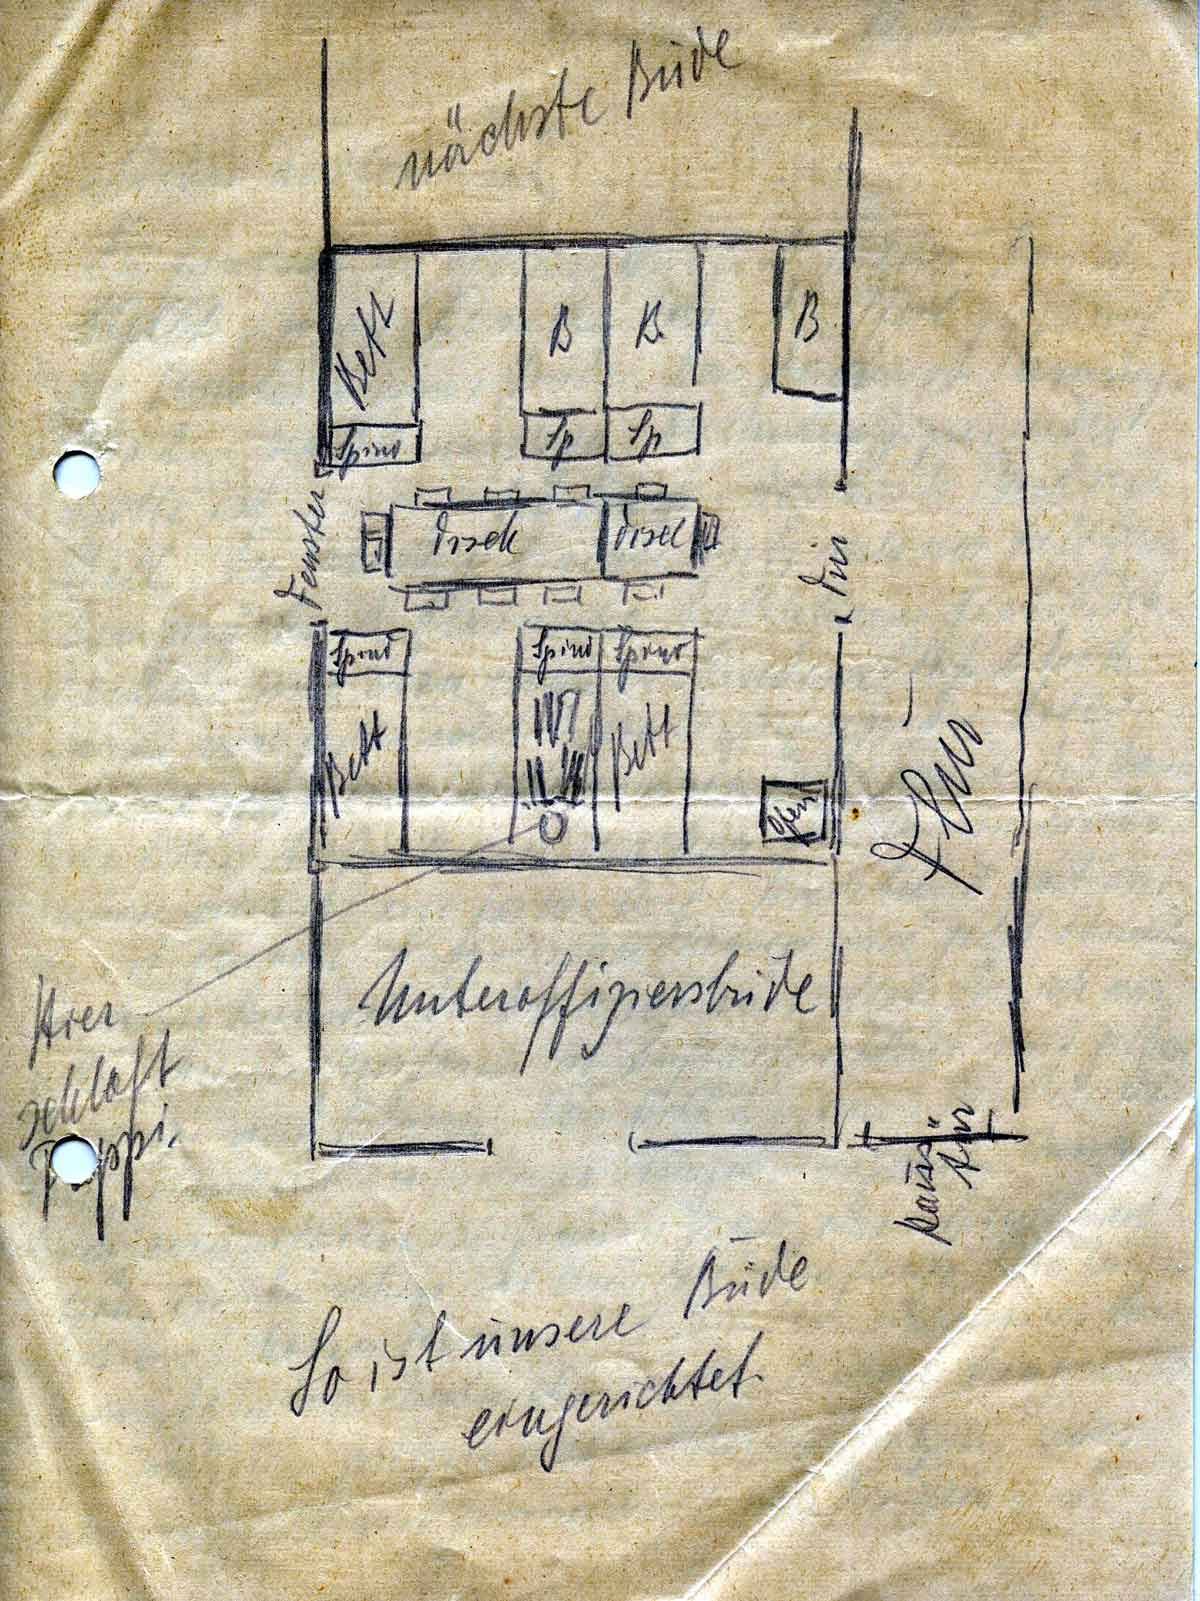 nächste Bude
Bett
B
B.
B
Spind
Sp
Sp
Fenster
Tisch
Tisch
Tür
Spind
Spind
Spind
Bett
Bett
Ofen
Flur
Unteroffiziersbude
Hier
schläft
Pappi.
Haus
tür
So ist unsere Bude
eingerichtet.